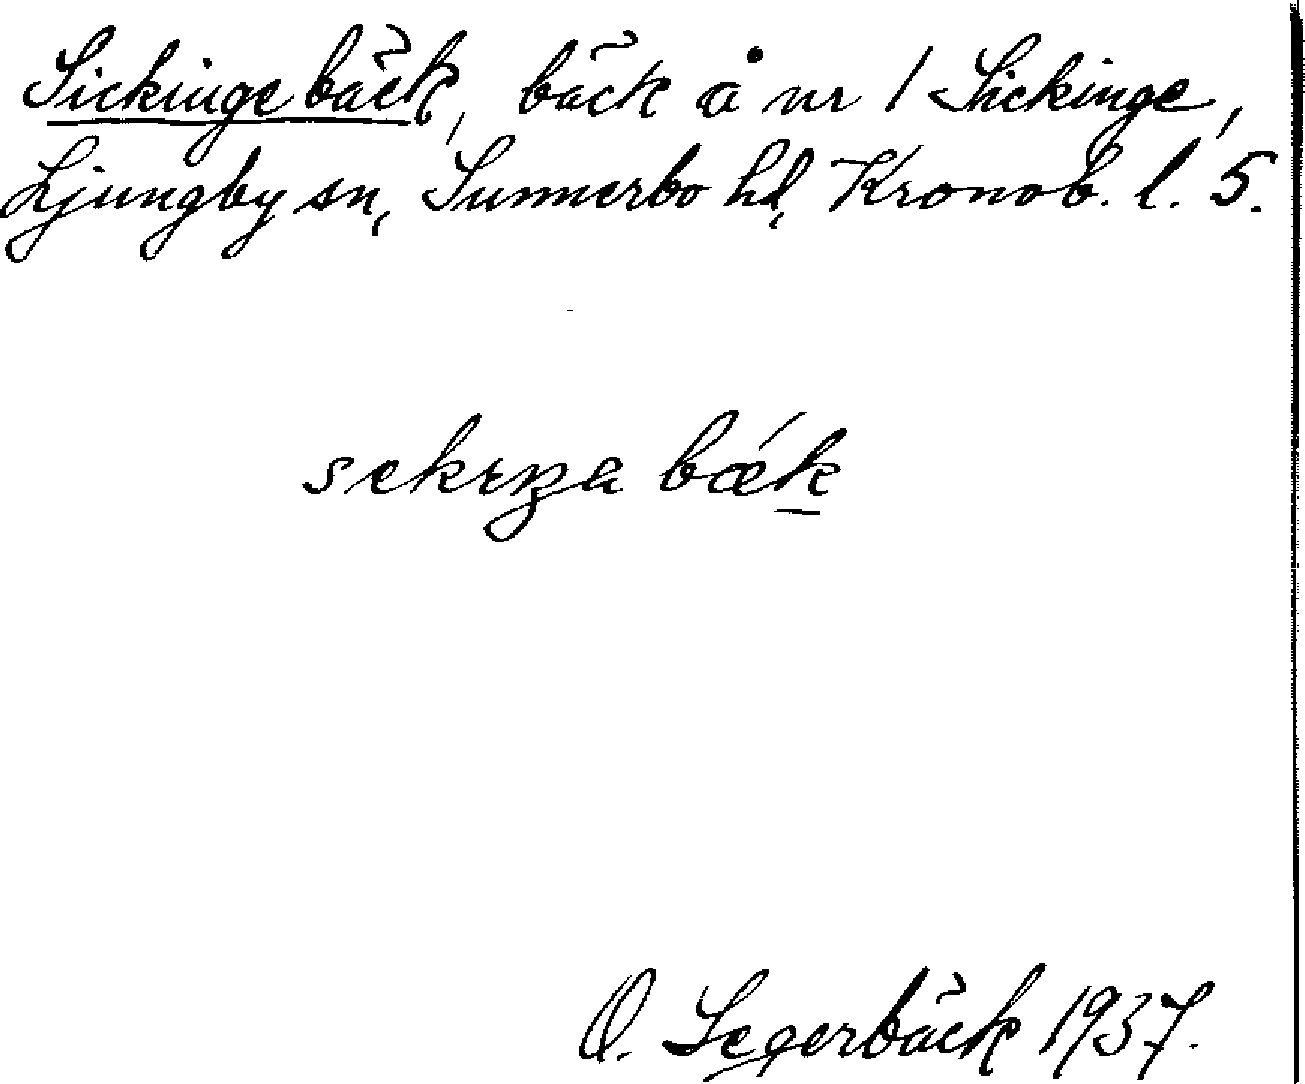 Sickingebäck, bäck å nr 1 Sickinge,
Ljungby sn, Sunnerbo hd, Kronob. l. 5.
sekıŋa bæ´k
O. Segerbäck 1937.